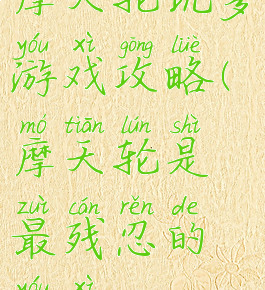 摩天轮玩多
yóu xì gōng lüè
游戏攻略(
mó tiān lún shì
摩天轮是
zuì cán rěn de
最残忍的
yóu xì